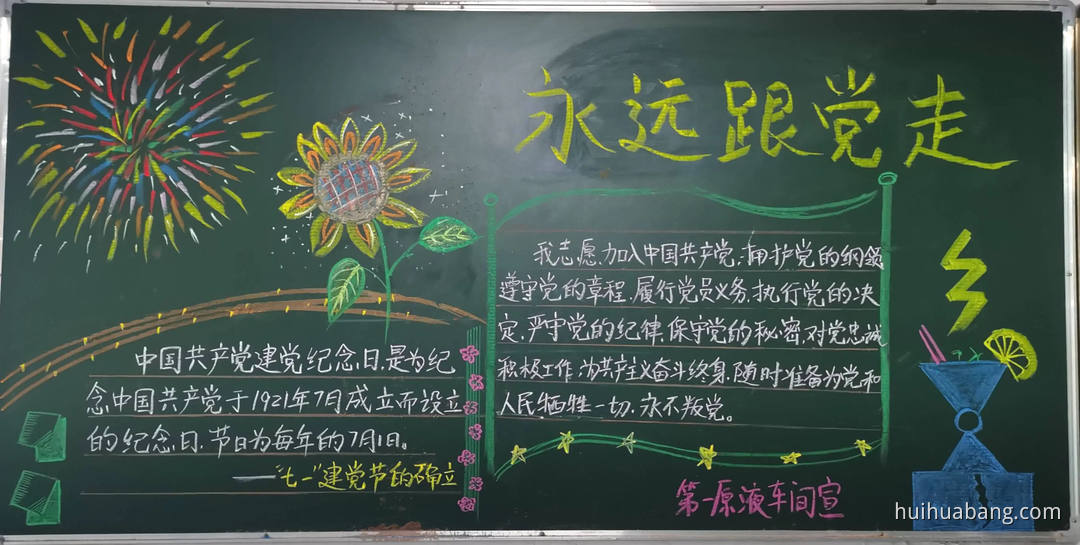 永远跟党走
中国共产党建党纪念日,是为纪
念中国共产党于1921年7月成立而设立
的纪念日,节日为每年的7月1日。
——“七一”建党节的确立
我志愿加入中国共产党,拥护党的纲领
遵守党的章程,履行党员义务,执行党的决
定,严守党的纪律,保守党的秘密,对党忠诚
积极工作,为共产主义奋斗终身,随时准备为党和
人民牺牲一切,永不叛党。
第一原液车间宣
huihuabang.com